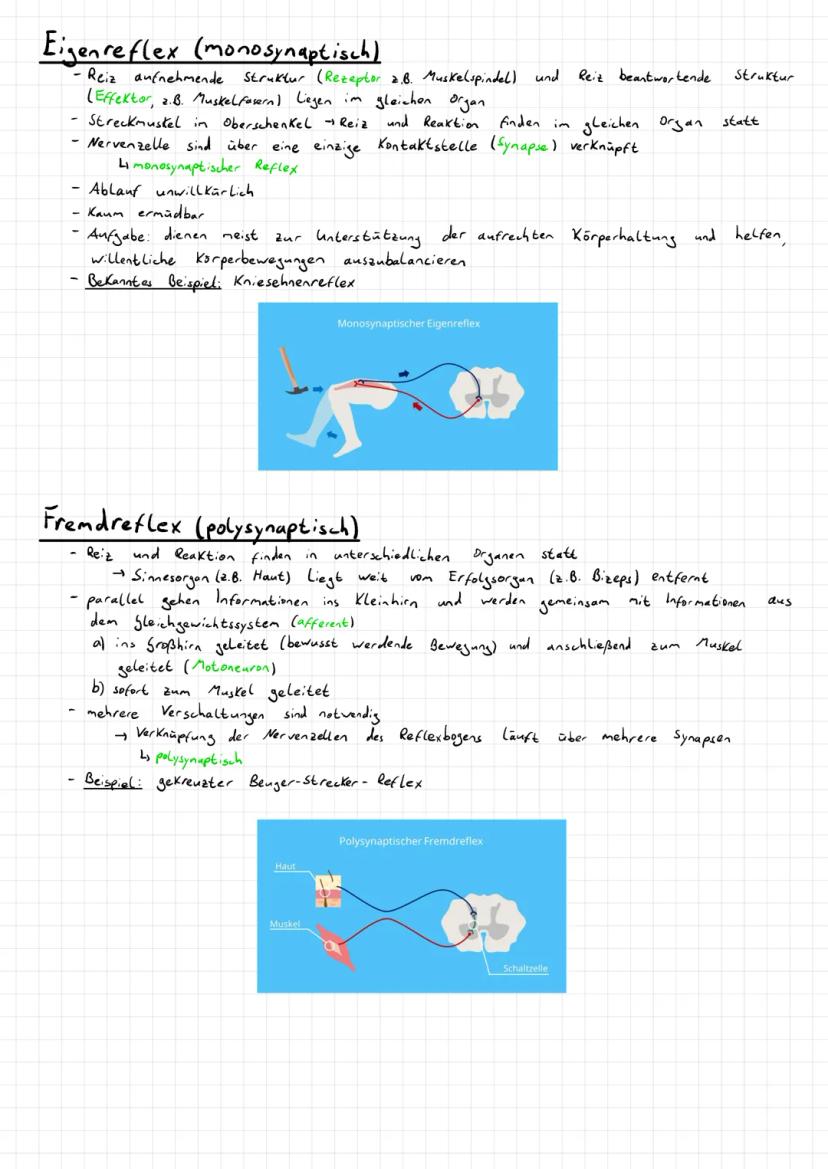 Eigenreflex (monosynaptisch)
- Reiz aufnehmende Struktur (Rezeptor z.B. Muskelspindel) und Reiz beantwortende Struktur
(Effektor, z.B. Muskelfasern) liegen im gleichen Organ
- Streckmuskel im Oberschenkel → Reiz und Reaktion finden im gleichen Organ statt
- Nervenzelle sind über eine einzige Kontaktstelle (Synapse) verknüpft
↳ monosynaptischer Reflex
- Ablauf unwillkürlich
- Kaum ermüdbar
- Aufgabe: dienen meist zur Unterstützung der aufrechten Körperhaltung und helfen,
willentliche Körperbewegungen auszubalancieren
- Bekanntes Beispiel: Kniesehnenreflex
Monosynaptischer Eigenreflex
Fremdreflex (polysynaptisch)
- Reiz und Reaktion finden in unterschiedlichen Organen statt
→ Sinnesorgan (z.B. Haut) liegt weit vom Erfolgsorgan (z.B. Bizeps) entfernt
- parallel gehen Informationen ins Kleinhirn und werden gemeinsam mit Informationen aus
dem Gleichgewichtssystem (afferent)
a) ins Großhirn geleitet (bewusst werdende Bewegung) und anschließend zum Muskel
geleitet (Motoneuron)
b) sofort zum Muskel geleitet
- mehrere Verschaltungen sind notwendig
→ Verknüpfung der Nervenzellen des Reflexbogens läuft über mehrere Synapsen
↳ polysynaptisch
- Beispiel: gekreuzter Beuger-Strecker-Reflex
Polysynaptischer Fremdreflex
Haut
Muskel
Schaltzelle